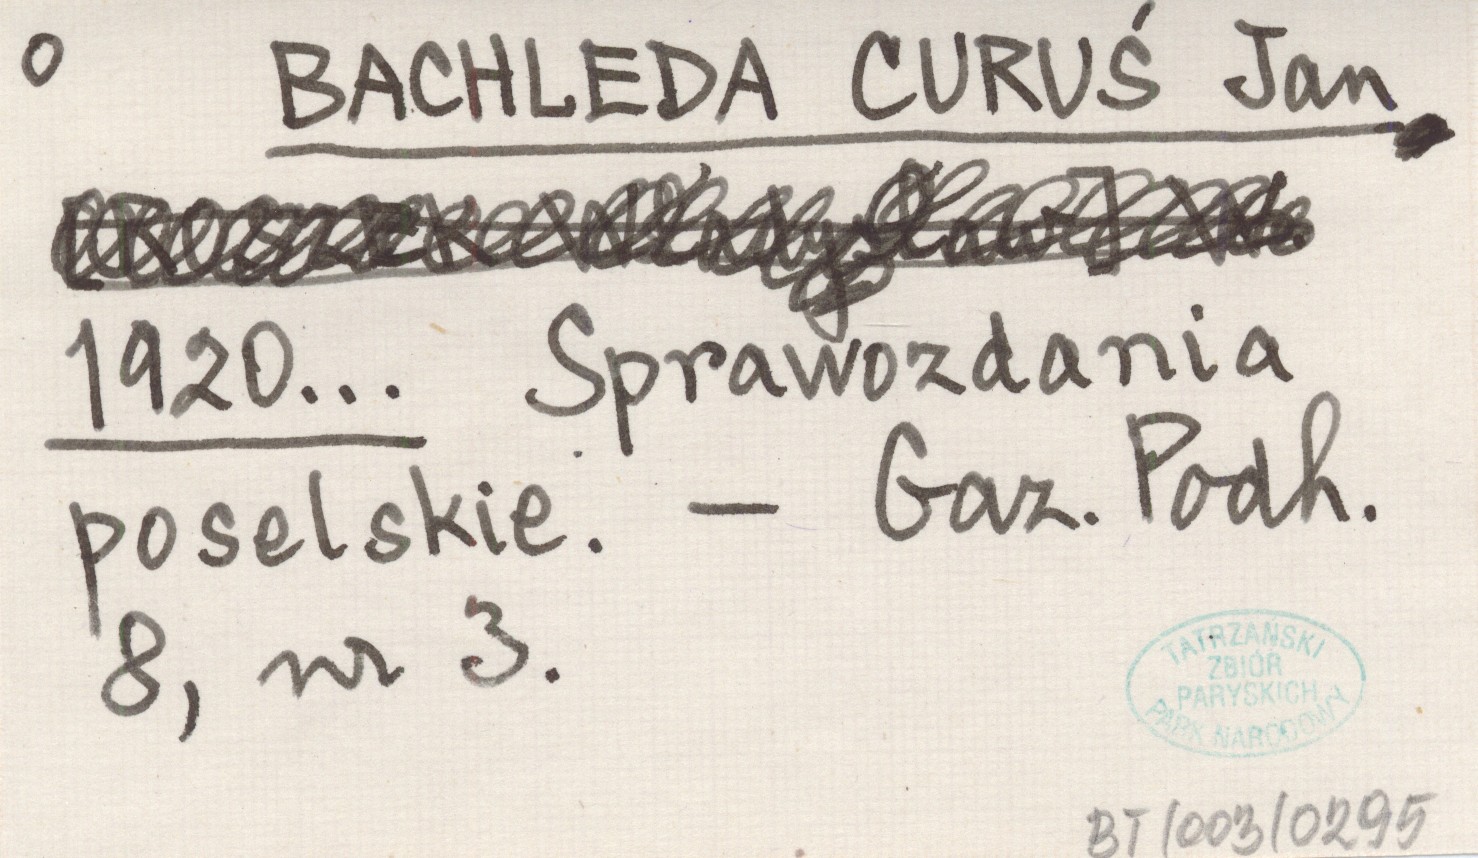 o BACHLEDA CURUŚ Jan
1920... Sprawozdania
poselskie. — Gaz. Podh.
8, nr 3.
TATRZAŃSKI
ZBIÓR
PARYSKICH
PARK NARODOWY
BT/003/0295